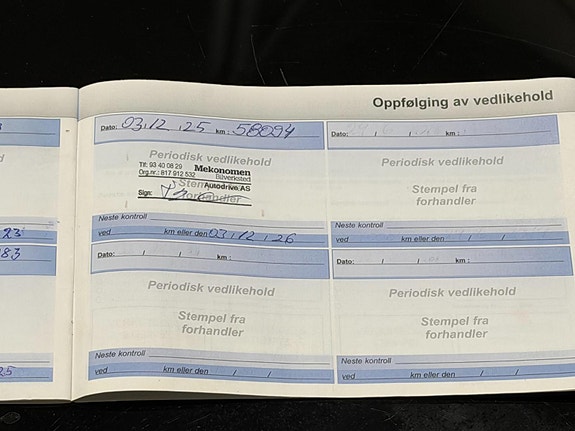 Oppfølging av vedlikehold
Dato: 03.12.25 km: 58094
Periodisk vedlikehold
Tlf: 93 40 08 29 Mekonomen
Org.nr.: 817 912 532 Bilverksted
Stempel fra Autodrive AS
Sign:
forhandler
Neste kontroll
ved km eller den 03.12.26
Dato: / / km:
Periodisk vedlikehold
Stempel fra
forhandler
Neste kontroll
ved km eller den / /
23
Dato: / / km:
Periodisk vedlikehold
Stempel fra
forhandler
Neste kontroll
ved km eller den / /
Dato: / / km:
Periodisk vedlikehold
Stempel fra
forhandler
Neste kontroll
ved km eller den / /
83
25